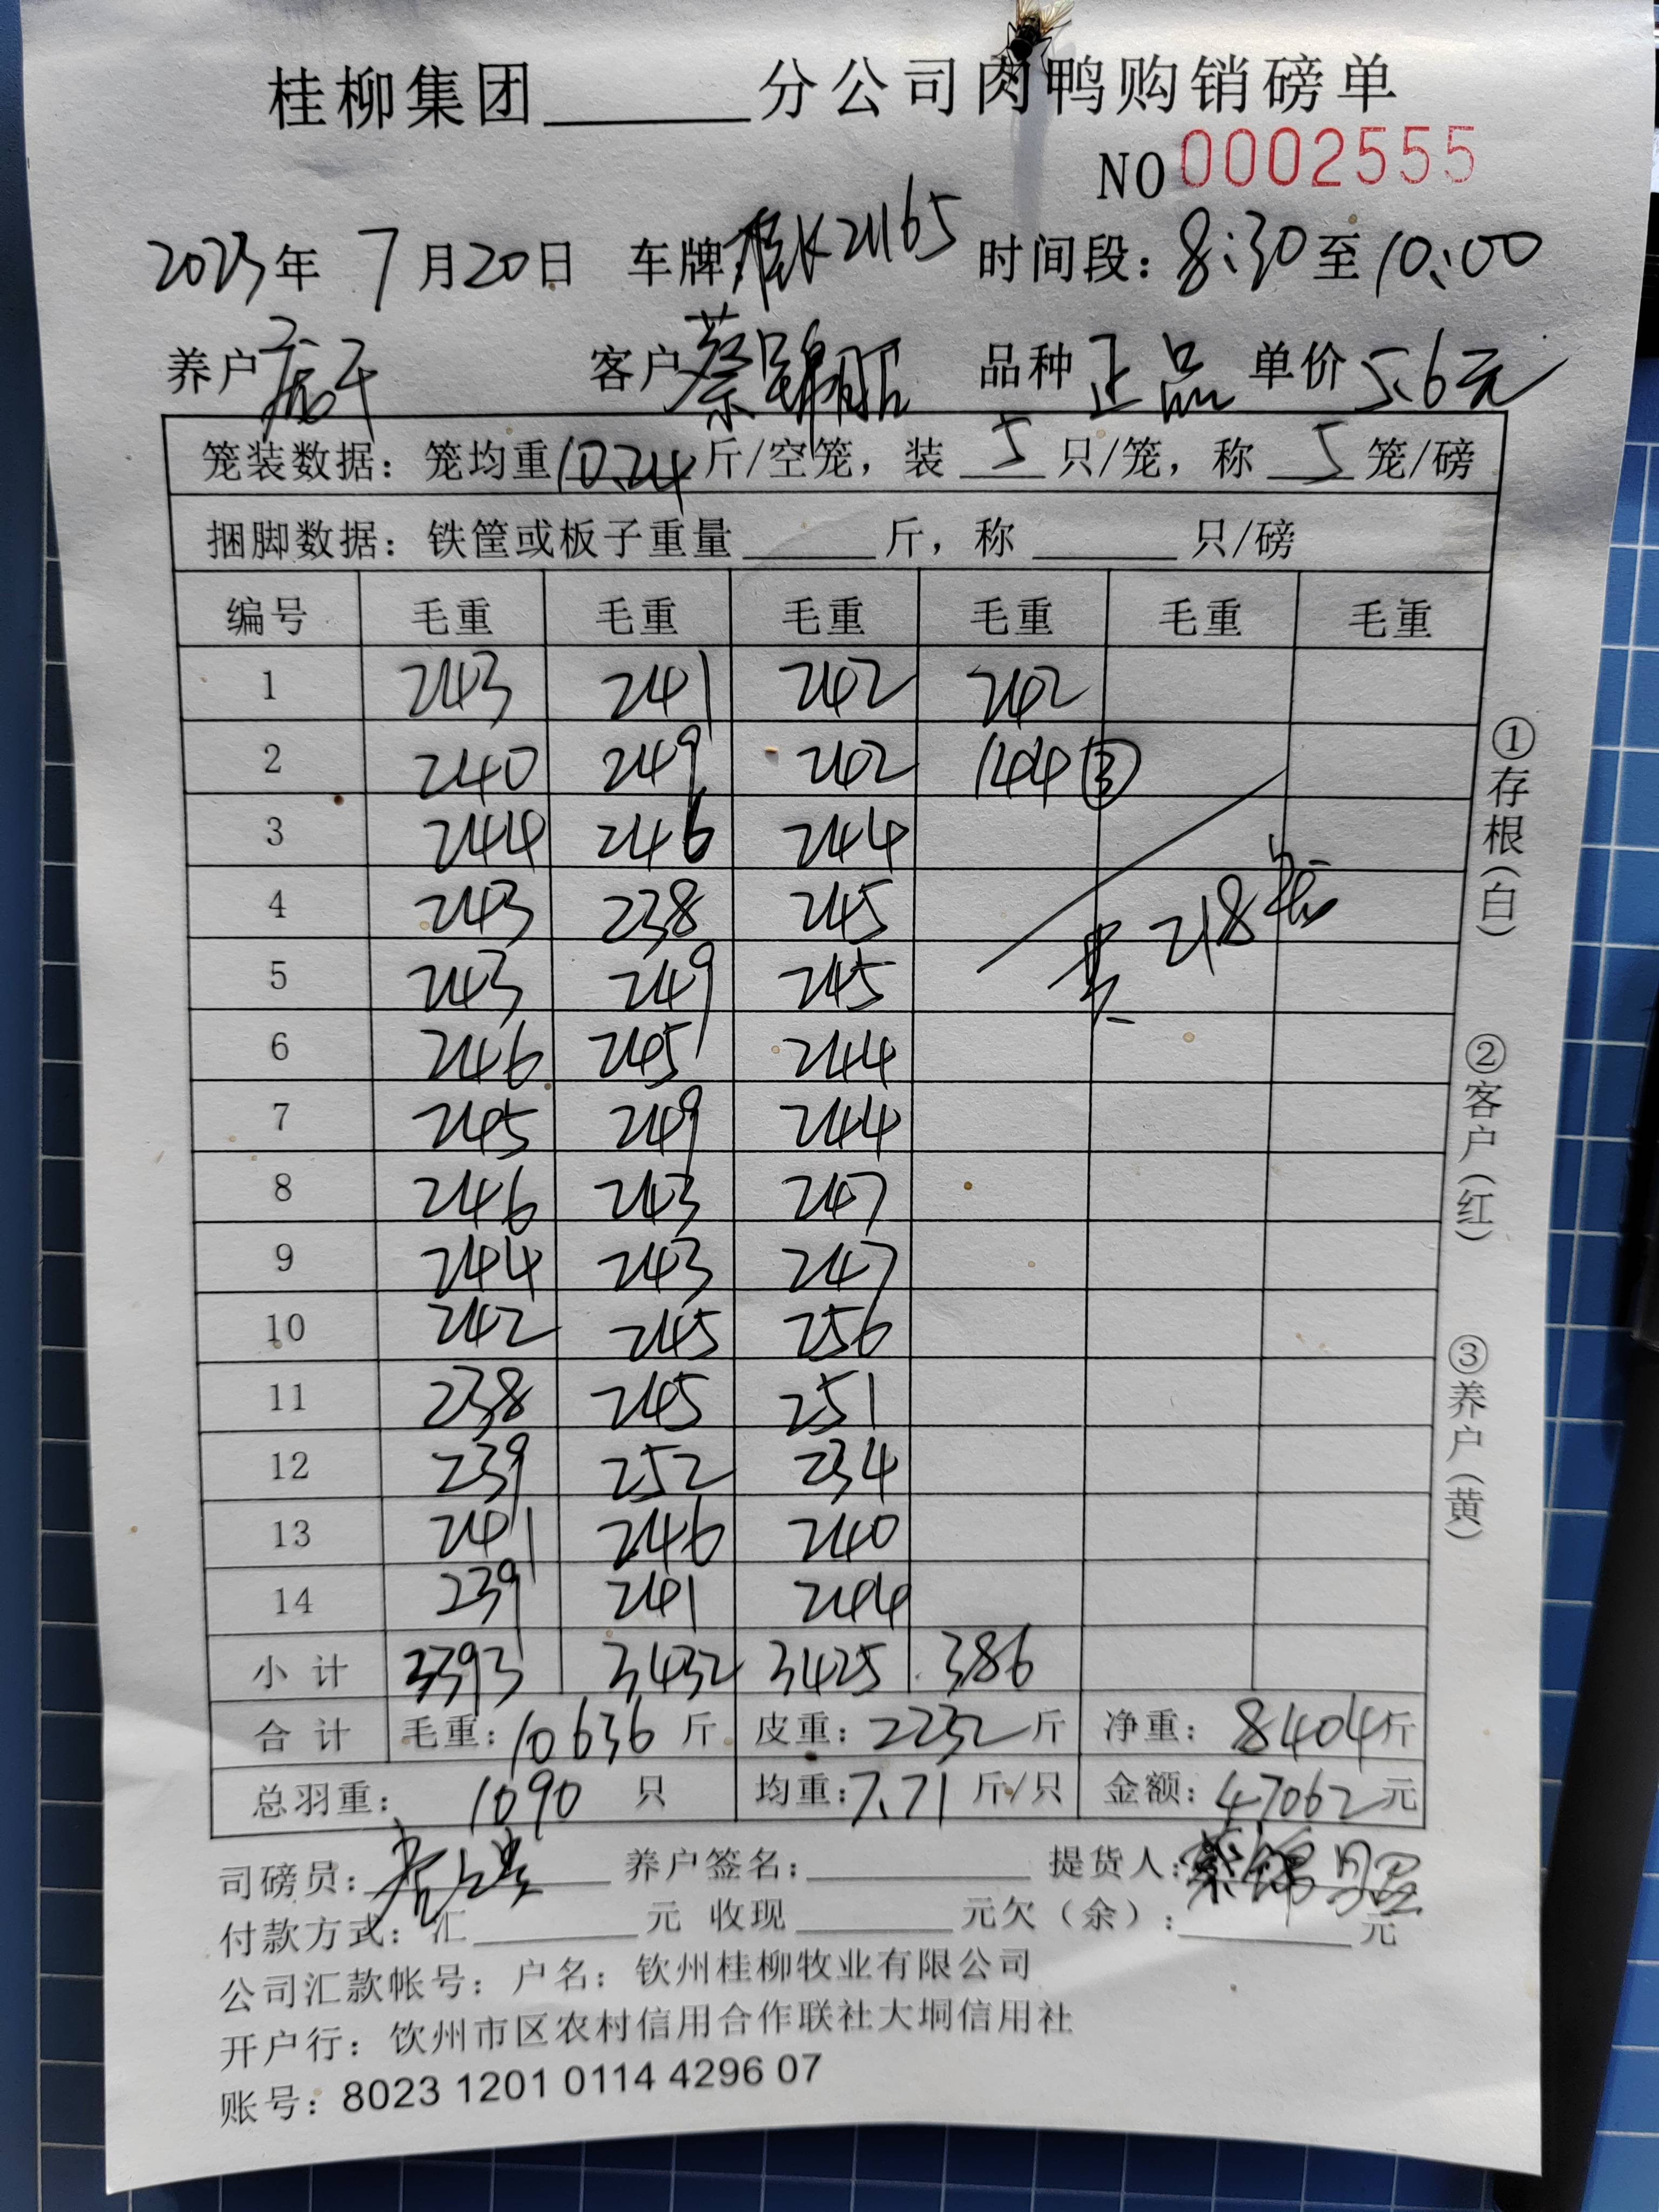 桂柳集团______分公司肉鸭购销磅单
NO 0002555
2023年 7月20日 车牌 21165 时间段：8:30至10:00
养户 客户 蔡锦昭 品种 正品 单价 5.6元
笼装数据：笼均重10.24斤/空笼，装 5 只/笼，称 5 笼/磅
捆脚数据：铁筐或板子重量______斤，称______只/磅
编号 毛重 毛重 毛重 毛重 毛重 毛重
1 243 241 242 242
2 240 249 242 144③
3 244 246 244
4 243 238 245 共218笼
5 243 249 245
6 246 245 244
7 245 249 244
8 246 243 247
9 244 243 247
10 242 245 256
11 238 245 251
12 239 252 234
13 241 246 240
14 239 241 244
小计 3393 3432 3425 386
合计 毛重：10636斤 皮重：2232斤 净重：8404斤
总羽重：1090 只 均重：7.71斤/只 金额：47062元
司磅员： 养户签名：______ 提货人：蔡锦昭
付款方式：汇______元 收现______元欠（余）：______元
公司汇款帐号：户名：钦州桂柳牧业有限公司
开户行：钦州市区农村信用合作联社大垌信用社
账号：8023 1201 0114 4296 07
①存根(白)
②客户(红)
③养户(黄)